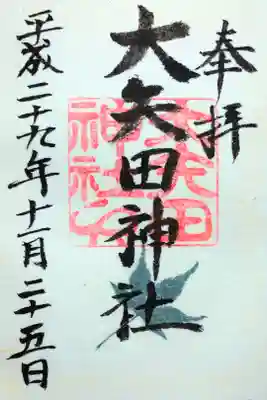 奉拝
大矢田神社
平成二十九年十一月二十五日